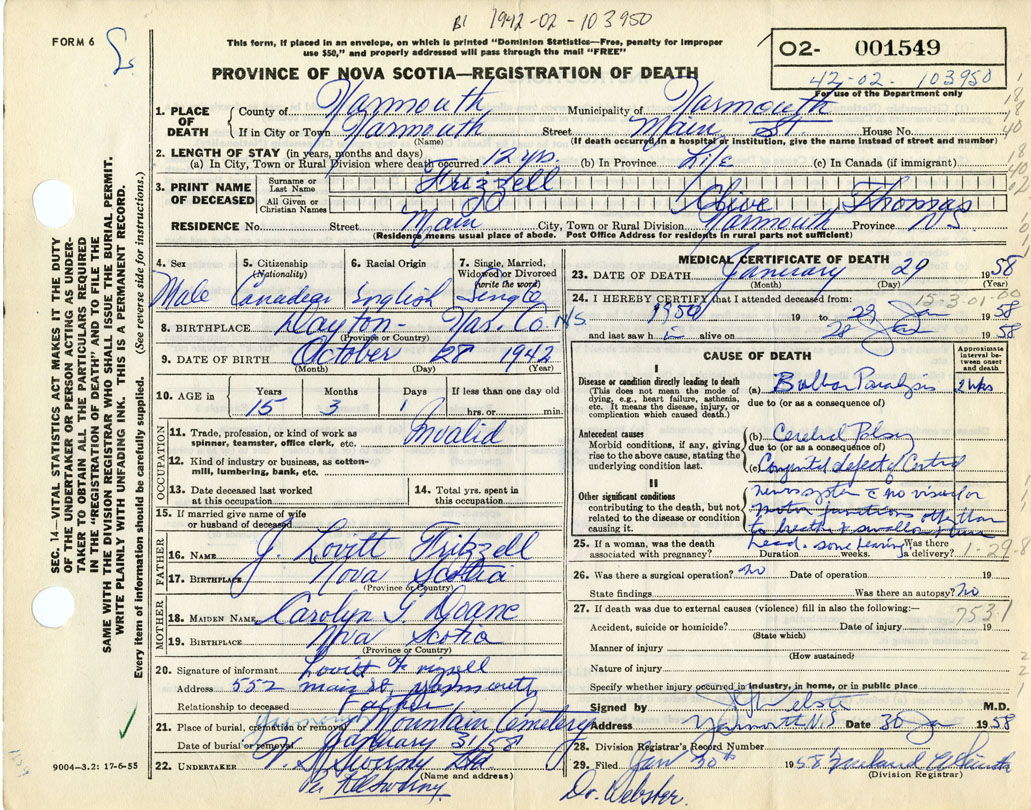 B1 1942-02-103950
FORM 6
This form, if placed in an envelope, on which is printed "Dominion Statistics—Free, penalty for improper
use $50," and properly addressed will pass through the mail "FREE"
O2- 001549
42-02-103950
For use of the Department only
PROVINCE OF NOVA SCOTIA—REGISTRATION OF DEATH
1. PLACE OF DEATH { County of Yarmouth Municipality of Yarmouth
If in City or Town Yarmouth Street Main St. House No.
(Name) (If death occurred in a hospital or institution, give the name instead of street and number)
2. LENGTH OF STAY (in years, months and days)
(a) In City, Town or Rural Division where death occurred 12 yrs. (b) In Province Life (c) In Canada (if immigrant)
3. PRINT NAME OF DECEASED { Surname or Last Name Frizzell
All Given or Christian Names Clive Thomas
RESIDENCE No. Street Main City, Town or Rural Division Yarmouth Province N.S.
(Residence means usual place of abode. Post Office Address for residents in rural parts not sufficient)
4. Sex 5. Citizenship (Nationality) 6. Racial Origin 7. Single, Married, Widowed or Divorced (write the word)
Male Canadian English Single
8. BIRTHPLACE Dayton - Yar. Co. N.S.
(Province or Country)
9. DATE OF BIRTH October 28 1942
(Month) (Day) (Year)
10. AGE in { Years Months Days If less than one day old
15 3 1 hrs. or min.
OCCUPATION
11. Trade, profession, or kind of work as spinner, teamster, office clerk, etc. Invalid
12. Kind of industry or business, as cotton-mill, lumbering, bank, etc.
13. Date deceased last worked at this occupation
14. Total yrs. spent in this occupation
15. If married give name of wife or husband of deceased
FATHER
16. NAME J. Lovitt Frizzell
17. BIRTHPLACE Nova Scotia
(Province or Country)
MOTHER
18. MAIDEN NAME Carolyn G Doane
19. BIRTHPLACE Nova Scotia
(Province or Country)
20. Signature of informant Lovitt Frizzell
Address 552 Main St. Yarmouth
Relationship to deceased Father
21. Place of burial, cremation or removal Mountain Cemetery
Date of burial or removal January 31/58
22. UNDERTAKER V. S. Sweeny Ltd
(Name and address)
Per
9004-3.2: 17-6-55
MEDICAL CERTIFICATE OF DEATH
23. DATE OF DEATH January 29 1958
(Month) (Day) (Year)
15-3-01-00
24. I HEREBY CERTIFY that I attended deceased from:
1950 19 to 29 Jan 1958
and last saw h i alive on 28 Jan 1958
CAUSE OF DEATH
Approximate interval between onset and death
I
Disease or condition directly leading to death
(This does not mean the mode of dying, e.g., heart failure, asthenia, etc. It means the disease, injury, or complication which caused death.)
(a) Bulbar Paralysis 2 wks
due to (or as a consequence of)
Antecedent causes
Morbid conditions, if any, giving rise to the above cause, stating the underlying condition last.
(b) Cerebral Palsy
due to (or as a consequence of)
(c) Congenital defect of Central
II
Other significant conditions
contributing to the death, but not related to the disease or condition causing it.
nervous system c no vision or
motor functions other than
to breathe & swallow & turn
head. some hearing
25. If a woman, was the death associated with pregnancy? Duration weeks. Was there a delivery?
1-29.8
26. Was there a surgical operation? no Date of operation 19
State findings Was there an autopsy? no
27. If death was due to external causes (violence) fill in also the following:—
7531
Accident, suicide or homicide? Date of injury 19
(State which)
Manner of injury
(How sustained)
Nature of injury
Specify whether injury occurred in industry, in home, or in public place
Signed by Webster M.D.
Address Yarmouth N.S. Date 30 Jan 1958
28. Division Registrar's Record Number
29. Filed Jan 30th 1958
(Division Registrar)
Dr. Webster.
SEC. 14—VITAL STATISTICS ACT MAKES IT THE DUTY
OF THE UNDERTAKER OR PERSON ACTING AS UNDER-
TAKER TO OBTAIN ALL THE PARTICULARS REQUIRED
IN THE "REGISTRATION OF DEATH" AND TO FILE THE
SAME WITH THE DIVISION REGISTRAR WHO SHALL ISSUE THE BURIAL PERMIT.
WRITE PLAINLY WITH UNFADING INK. THIS IS A PERMANENT RECORD.
Every item of information should be carefully supplied. (See reverse side for instructions.)